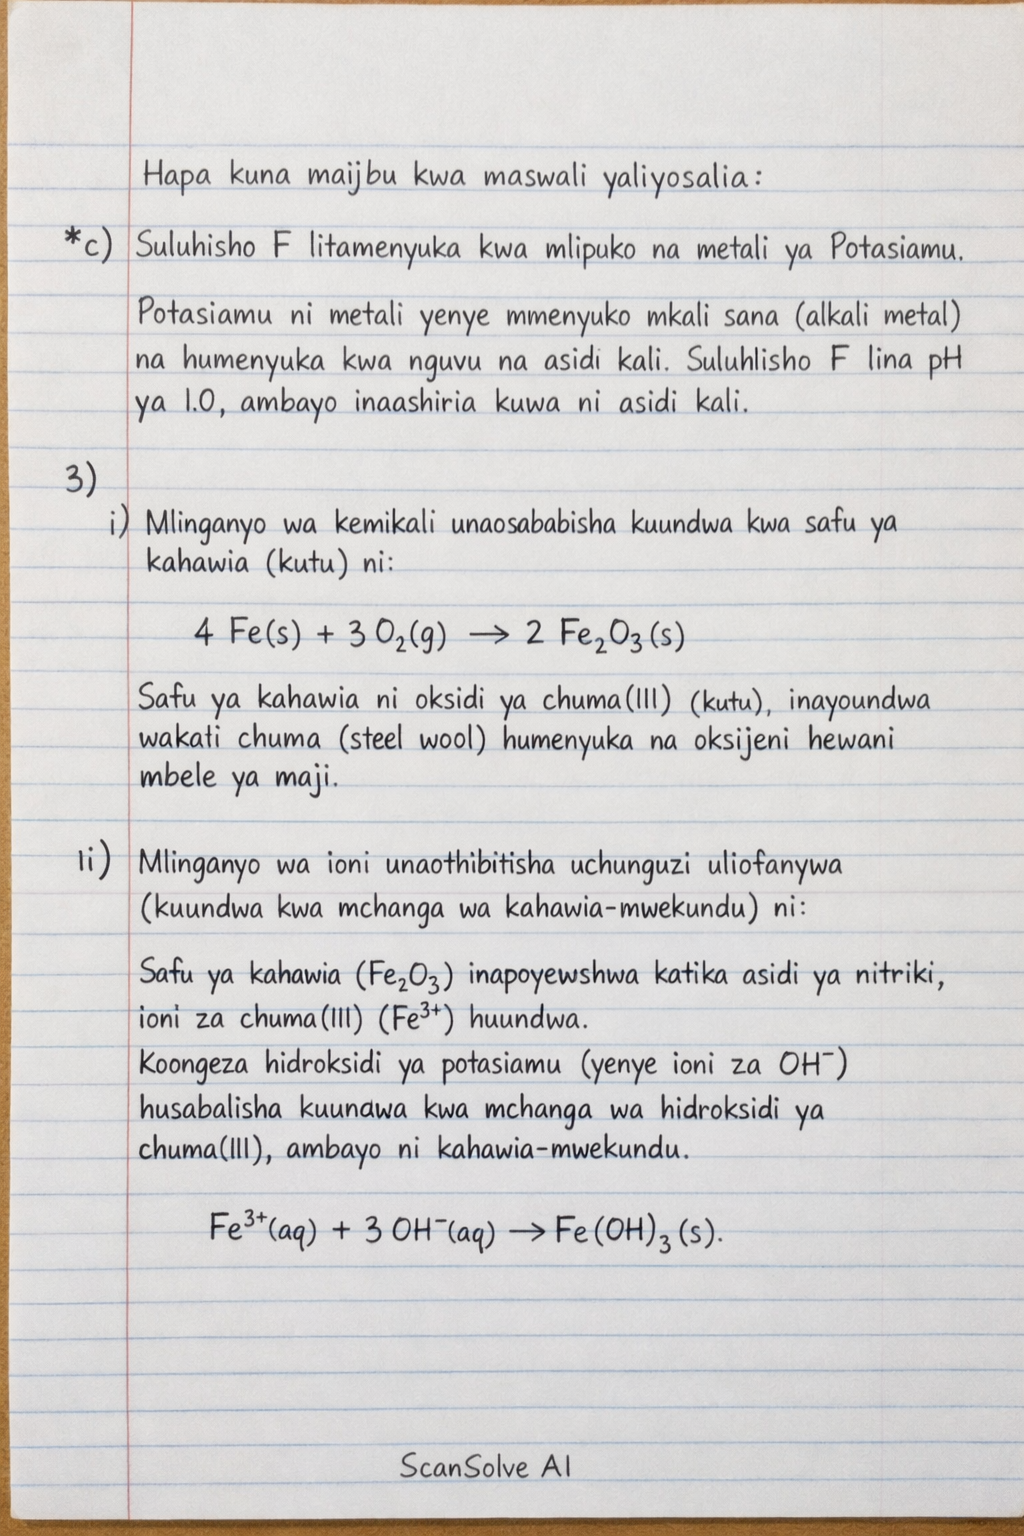 Hapa kuna maijbu kwa maswali yaliyosalia:
*c) Suluhisho F litamenyuka kwa mlipuko na metali ya Potasiamu.
Potasiamu ni metali yenye mmenyuko mkali sana (alkali metal)
na humenyuka kwa nguvu na asidi kali. Suluhlisho F lina pH
ya 1.0, ambayo inaashiria kuwa ni asidi kali.
3)
i) Mlinganyo wa kemikali unaosababisha kuundwa kwa safu ya
kahawia (kutu) ni:
4 Fe(s) + 3 O₂(g) → 2 Fe₂O₃(s)
Safu ya kahawia ni oksidi ya chuma(III) (kutu), inayoundwa
wakati chuma (steel wool) humenyuka na oksijeni hewani
mbele ya maji.
ii) Mlinganyo wa ioni unaothibitisha uchunguzi uliofanywa
(kuundwa kwa mchanga wa kahawia-mwekundu) ni:
Safu ya kahawia (Fe₂O₃) inapoyewshwa katika asidi ya nitriki,
ioni za chuma(III) (Fe³⁺) huundwa.
Koongeza hidroksidi ya potasiamu (yenye ioni za OH⁻)
husabalisha kuundwa kwa mchanga wa hidroksidi ya
chuma(III), ambayo ni kahawia-mwekundu.
Fe³⁺(aq) + 3 OH⁻(aq) → Fe(OH)₃(s).
ScanSolve AI